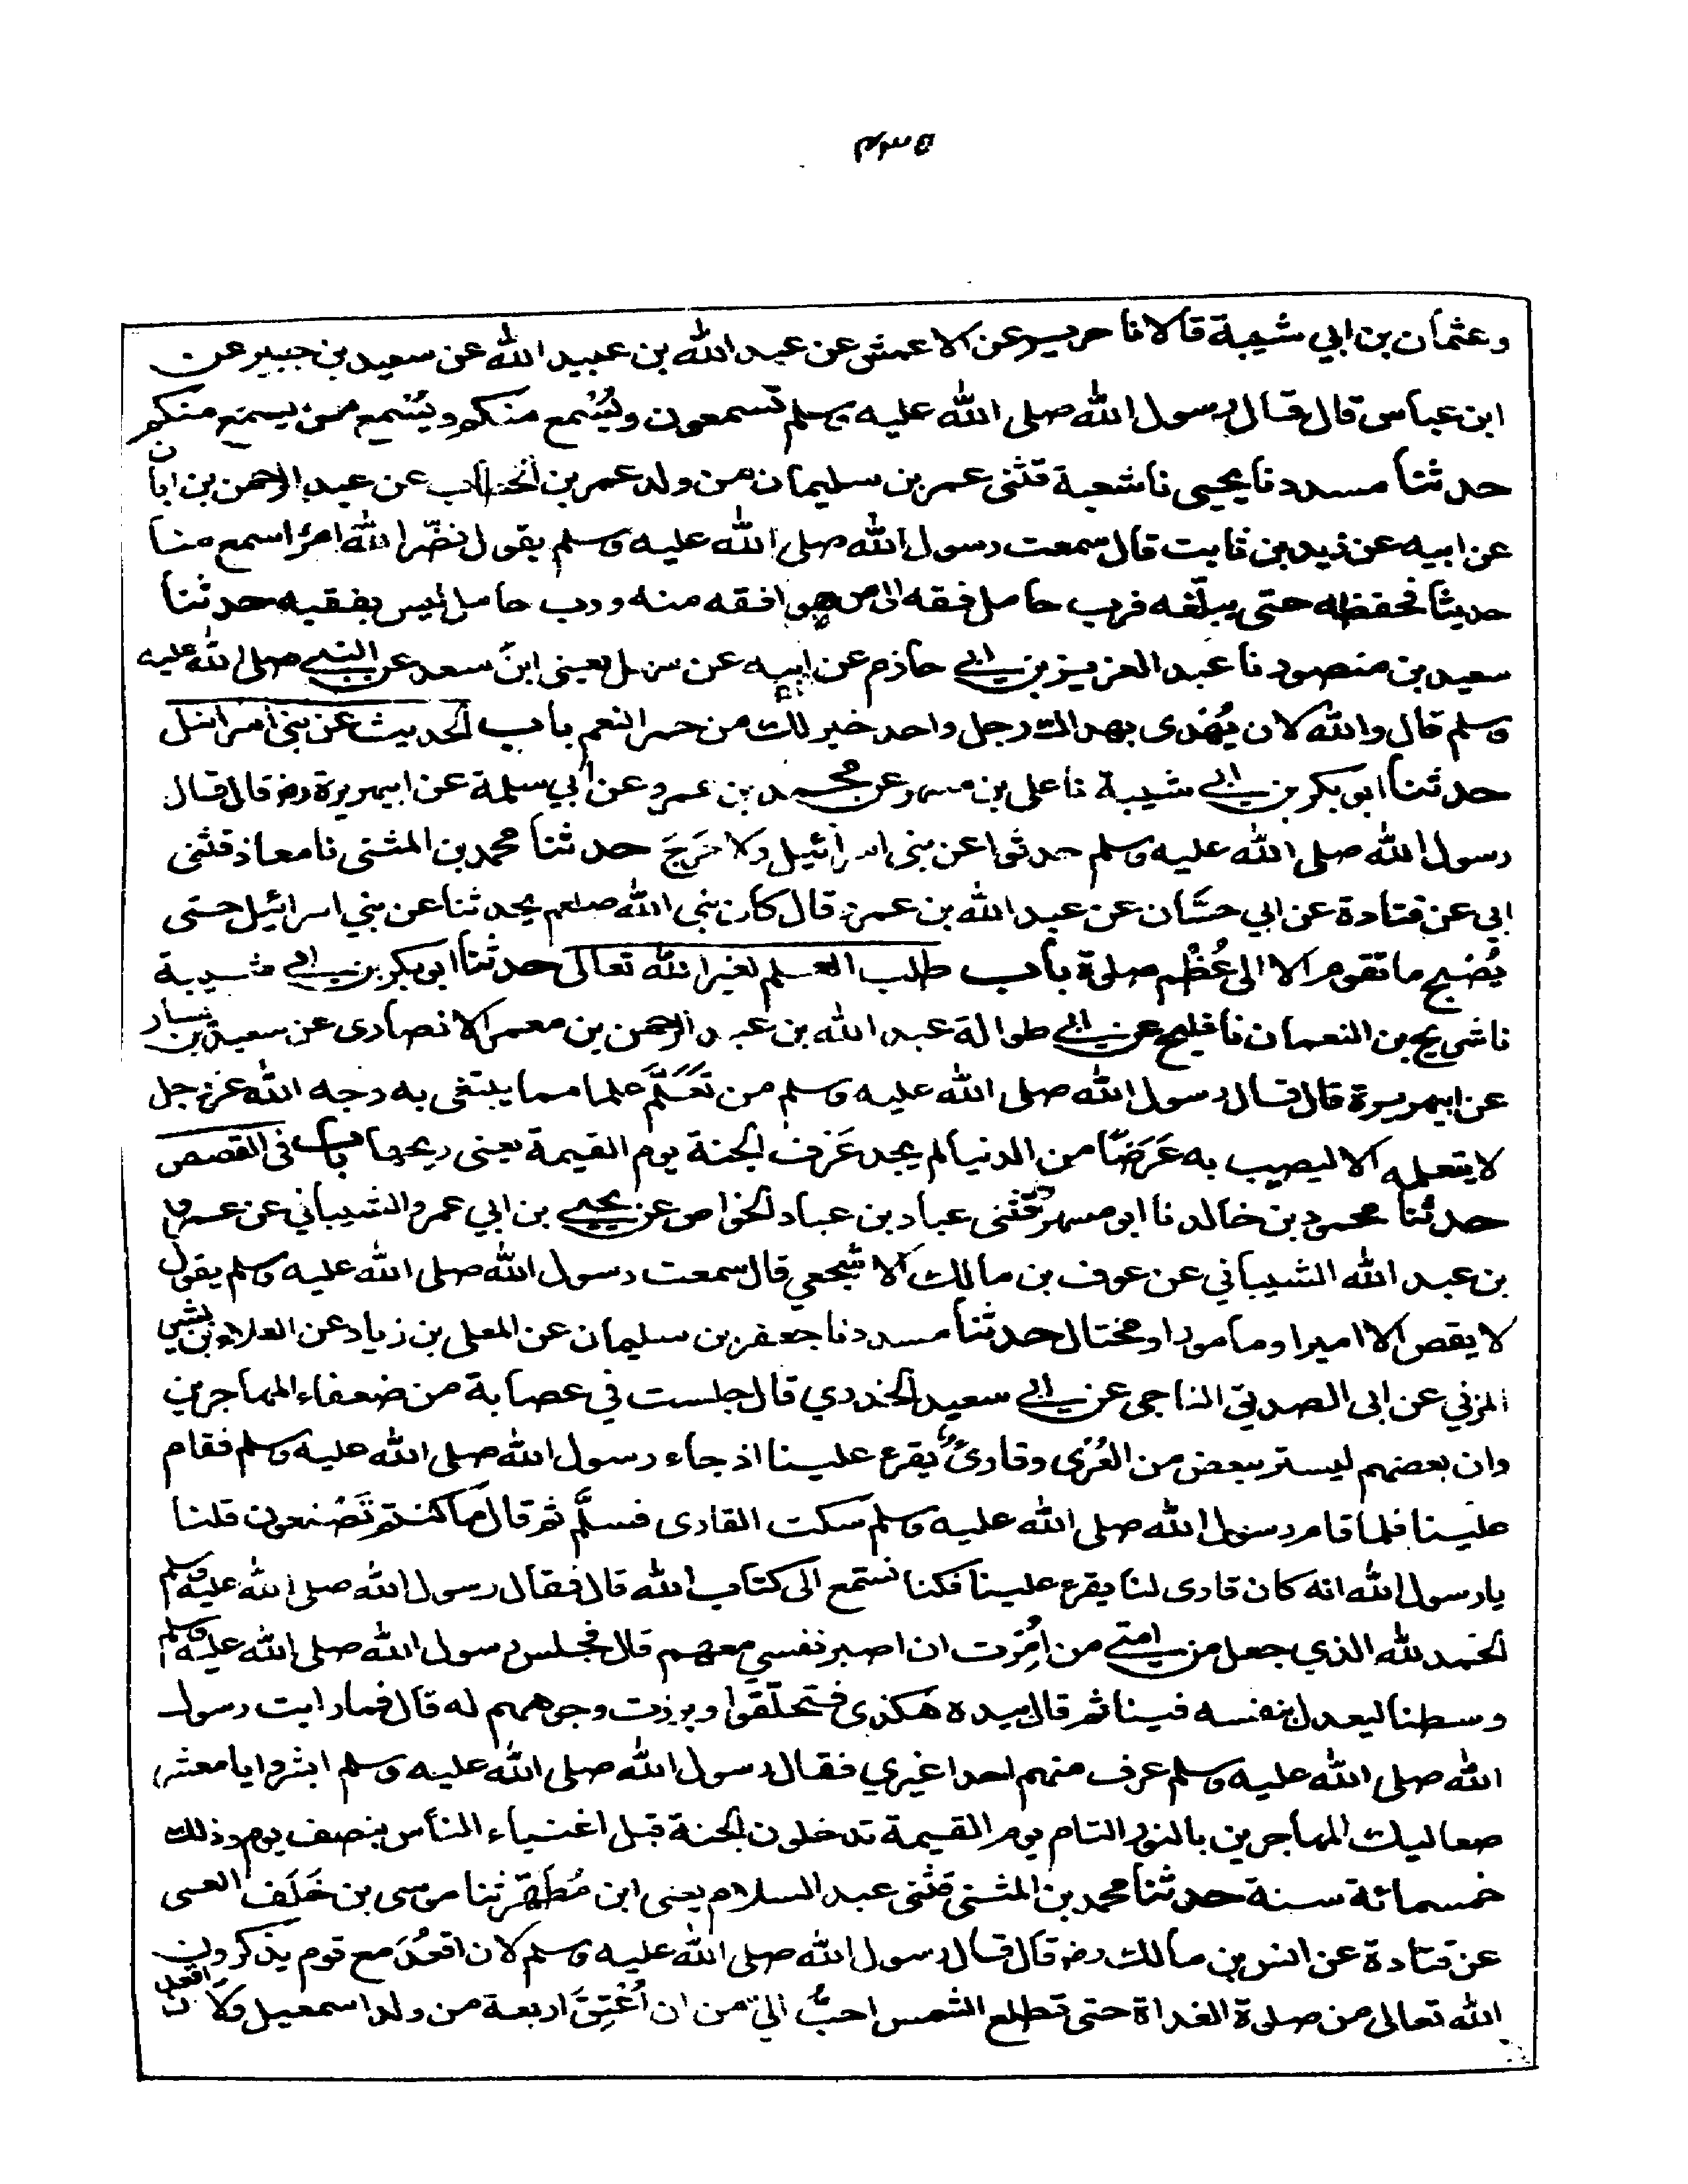 ٤٣٥
وعثمان بن ابي شيبة قالا نا جرير عن الاعمش عن عبد الله بن عبيد الله عن سعيد بن جبير عن
ابن عباس قال قال رسول الله صلى الله عليه وسلم تسمعون ويُسْمع منكم ويُسْمع ممن يسمع منكم
حدثنا مسدد نا يحيى نا شعبة قثنى عمر بن سليمان من ولد عمر بن الخطاب عن عبد الرحمن بن ابان
عن ابيه عن زيد بن ثابت قال سمعت رسول الله صلى الله عليه وسلم يقول نضّر الله امرٔا سمع منا
حديثا فحفظه حتى يبلّغه فرب حامل فقه الى من هو افقه منه ورب حامل ليس بفقيه حدثنا
سعيد بن منصور نا عبد العزيز بن ابي حازم عن ابيه عن سهل يعنى ابن سعد عن النبي صلى الله عليه
وسلم قال والله لان يُهْدى بهداك رجل واحد خير لك من حمر النعم باب الحديث عن بنى اسرائيل
حدثنا ابو بكر بن ابي شيبة نا على بن مسهر عن محمد بن عمرو عن ابي سلمة عن ابيهريرة رض قال قال
رسول الله صلى الله عليه وسلم حدثوا عن بنى اسرائيل ولا حَرَجَ حدثنا محمد بن المثنى نا معاذ قثنى
ابي عن قتادة عن ابي حسّان عن عبد الله بن عمرو قال كان نبى الله صلعم يحدثنا عن بني اسرائيل حتى
يُصْبح ما نقوم الا الى عُظْم صلوة باب طلب العلم لغير الله تعالى حدثنا ابو بكر بن ابي شيبة
نا شريح بن النعمان نا فليح عن ابي طوالة عبد الله بن عبد الرحمن بن معمر الانصارى عن سعيد بن يسار
عن ابيهريرة قال قال رسول الله صلى الله عليه وسلم من تَعَلَّمَ علما مما يبتغى به وجه الله عز وجل
لا يتعلمه الا ليصيب به عَرَضًا من الدنيا لم يجد عَرْف الجنة يوم القيمة يعنى ريحها باب فى القصص
حدثنا محمود بن خالد نا ابو مسهر قثنى عباد بن عباد الخواص عن يحيى بن ابي عمرو الشيباني عن عمرو
بن عبد الله الشيباني عن عوف بن مالك الاشجعي قال سمعت رسول الله صلى الله عليه وسلم يقول
لا يقص الا امير او مامور او مختال حدثنا مسدد نا جعفر بن سليمان عن المعلى بن زياد عن العلاء بن بشير
المزني عن ابى الصديق الناجى عن ابي سعيد الخدري قال جلست في عصابة من ضعفاء المهاجرين
وان بعضهم ليستتر ببعض من العُرْى وقارئٌ يقرع علينا اذ جاء رسول الله صلى الله عليه وسلم فقام
علينا فلما قام رسول الله صلى الله عليه وسلم سكت القارى فسلَّم ثم قال ما كنتم تَصْنعون قلنا
يا رسول الله انه كان قارى لنا يقرع علينا فكنا نستمع الى كتاب الله قال فقال رسول الله صلى الله عليه وسلم
الحمد لله الذي جعل من امتي من اُمِرْت ان اصبر نفسي معهم قال فجلس رسول الله صلى الله عليه وسلم
وسطنا ليعدل بنفسه فينا ثم قال بيده هكذى فتحلّقوا وبرزت وجوههم له قال فما رايت رسول
الله صلى الله عليه وسلم عرف منهم احدا غيري فقال رسول الله صلى الله عليه وسلم ابشروا يا معشر
صعاليك المهاجرين بالنور التام يوم القيمة تدخلون الجنة قبل اغنياء الناس بنصف يوم وذلك
خمسمائة سنة حدثنا محمد بن المثنى قثنى عبد السلام يعنى ابن مُطَهّر ثنا موسى بن خَلَف العمى
عن قتادة عن انس بن مالك رض قال قال رسول الله صلى الله عليه وسلم لان اقعُدَ مع قوم يذكرون
الله تعالى من صلوة الغداة حتى تطلع الشمس احبُّ اليّ من ان اُعْتِقَ اربعة من ولد اسمعيل ولان اقعد